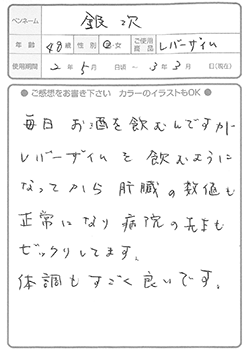 ペンネーム 銀次
年齢 48歳 性別 男・女 ご使用商品 レバーザイム
使用期間 2年5月 日頃 ～ 3年3月 日(現在)
● ご感想をお書き下さい カラーのイラストもOK ●
毎日 お酒を飲むんですが
レバーザイムを飲むように
なってから 肝臓の数値も
正常になり病院の先生も
ビックリしてます。
体調もすごく良いです。